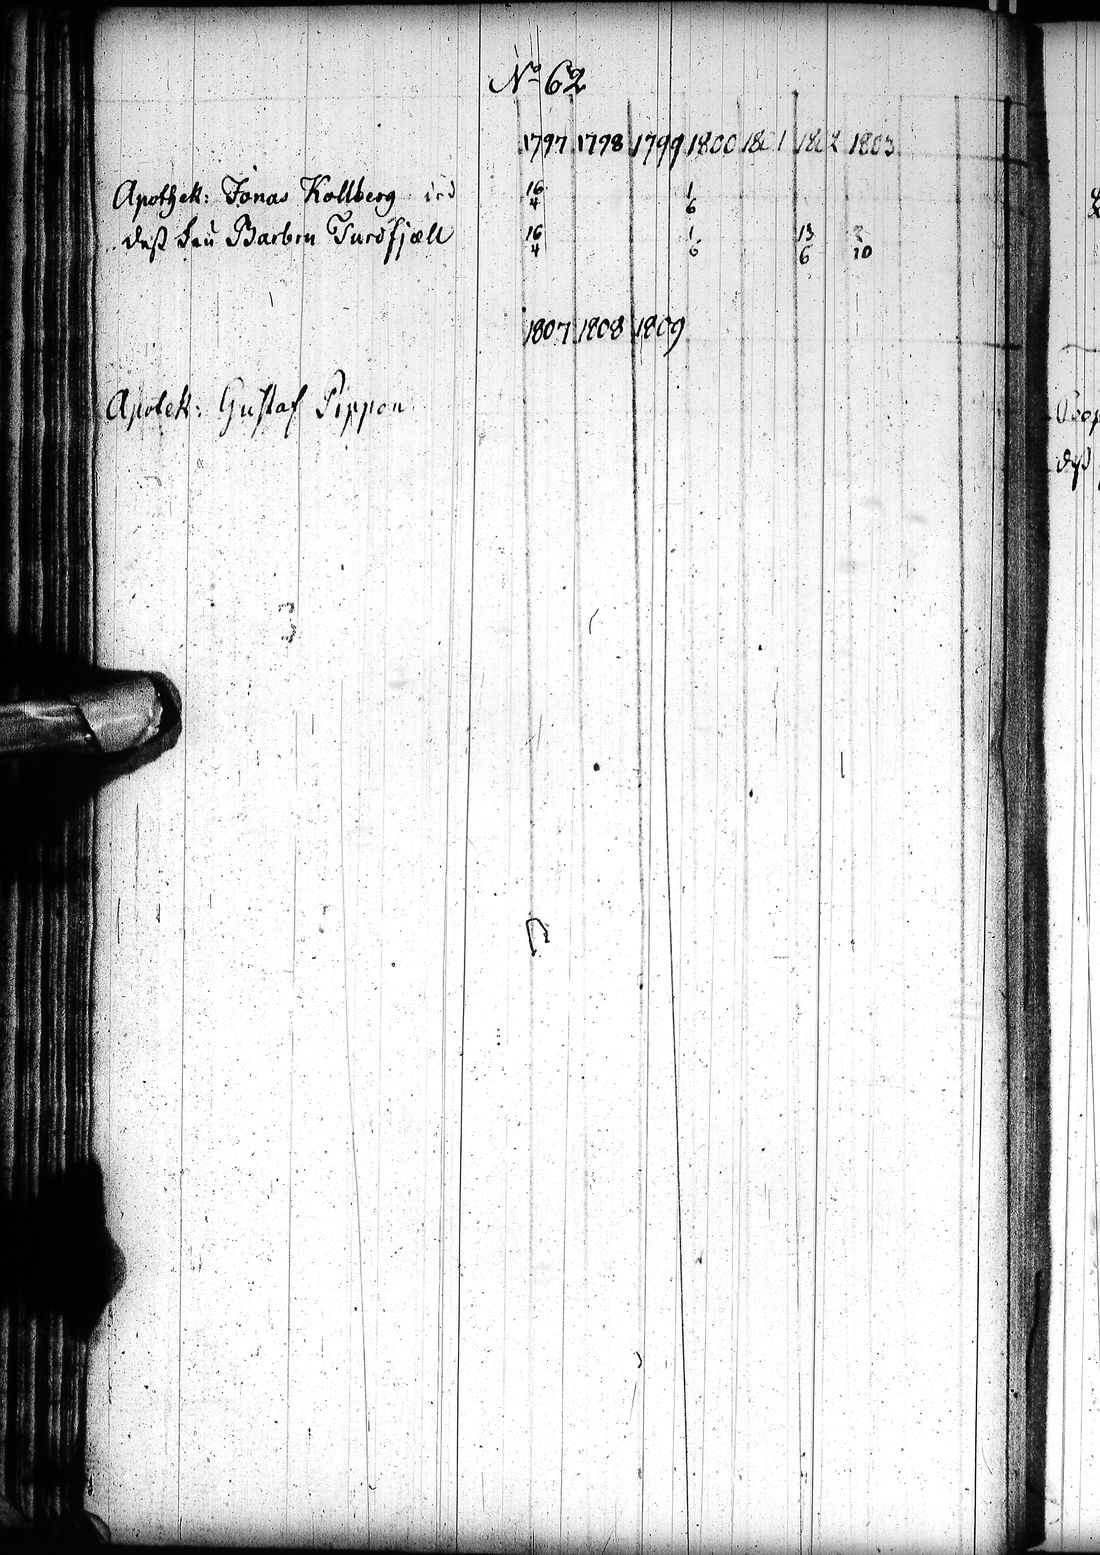 No 62
1797 1798 1799 1800 1801 1802 1803
Apothek: Jonas Kollberg
16 1
4 6
dess fru Barbru Turdfjæll
16 1 13 2
4 6 6 10
1807 1808 1809
Apotek: Gustaf Pippon